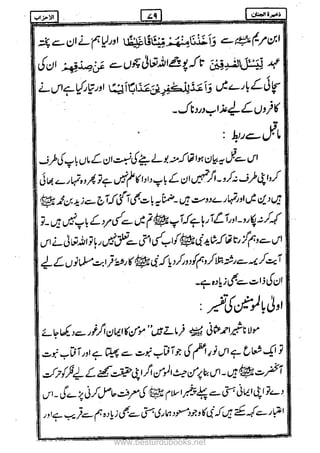 ذخیرۃ الجنان ۷۹ الاحزاب
ابن مریم سے وَاَخَذْنَا مِنْهُمْ مِّيْثَاقًا غَلِيْظًا اور لیا ہم نے ان سے پختہ
عہد لِّيَسْئَلَ الصّٰدِقِيْنَ تاکہ پوچھے اللہ تعالیٰ سچوں سے عَنْ صِدْقِهِمْ ان کی
سچائی کے بارے میں وَاَعَدَّ لِلْكٰفِرِيْنَ عَذَابًا اَلِيْمًا اور تیار کیا ہے اس نے
کافروں کے لیے عذاب دردناک۔
ماقبل سے ربط :
اس سے قبل یہ بیان ہوا تھا کہ منہ بولے بیٹے کی نسبت ان کے ماں باپ کی طرف
کرو اپنی طرف نہ کرو۔ اگر تمہیں ان کے باپ دادا کا علم نہیں ہے تو پھر وہ تمہارے بھائی
ہیں دین میں اور تمہارے دوست ہیں۔ ضمناً یہ بات بھی آئی کہ آج سے زید بن محمد ﷺ
کہہ کر نہ پکارو۔ اور آگے آ رہا ہے کہ آپ ﷺ تم میں سے کسی مرد کے باپ نہیں ہیں۔ تو
اس سے وہم گزرتا تھا کہ شاید نبی ﷺ کو اب کسی امتی سے تعلق نہیں رہا تو اللہ تعالیٰ نے اس
آیت کریمہ سے رشتہ بتلا کر وہم کو دور کر دیا کہ نبی ﷺ کا رشتہ قرابت مسلمانوں کے لیے
ان کی ذات سے بھی زیادہ ہے۔
اولیٰ بالمومنین کی تفسیر :
مولانا شبیر احمد عثمانی فرماتے ہیں "مومن کا ایمان اگر غور سے دیکھا جائے
تو ایک شعاع ہے اس نور اعظم کی جو آفتاب نبوت سے پھیلتا ہے اور آفتاب نبوت
آنحضرت ﷺ ہیں۔ اس بنا پر من حیث المومن اگر اپنی حقیقت سمجھنے کے لیے فکر کو حرکت
دے تو اپنی ایمانی ہستی سے پہلے پیغمبر اسلام ﷺ کی معرفت حاصل کرنی پڑے گی۔ اس
اعتبار سے کہہ سکتے ہیں کہ نبی کا وجود مسعود ہماری ہستی سے بھی زیادہ ہم سے قریب ہے اور
www.besturdubooks.net